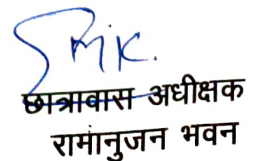 छात्रावास अधीक्षक
रामानुजन भवन